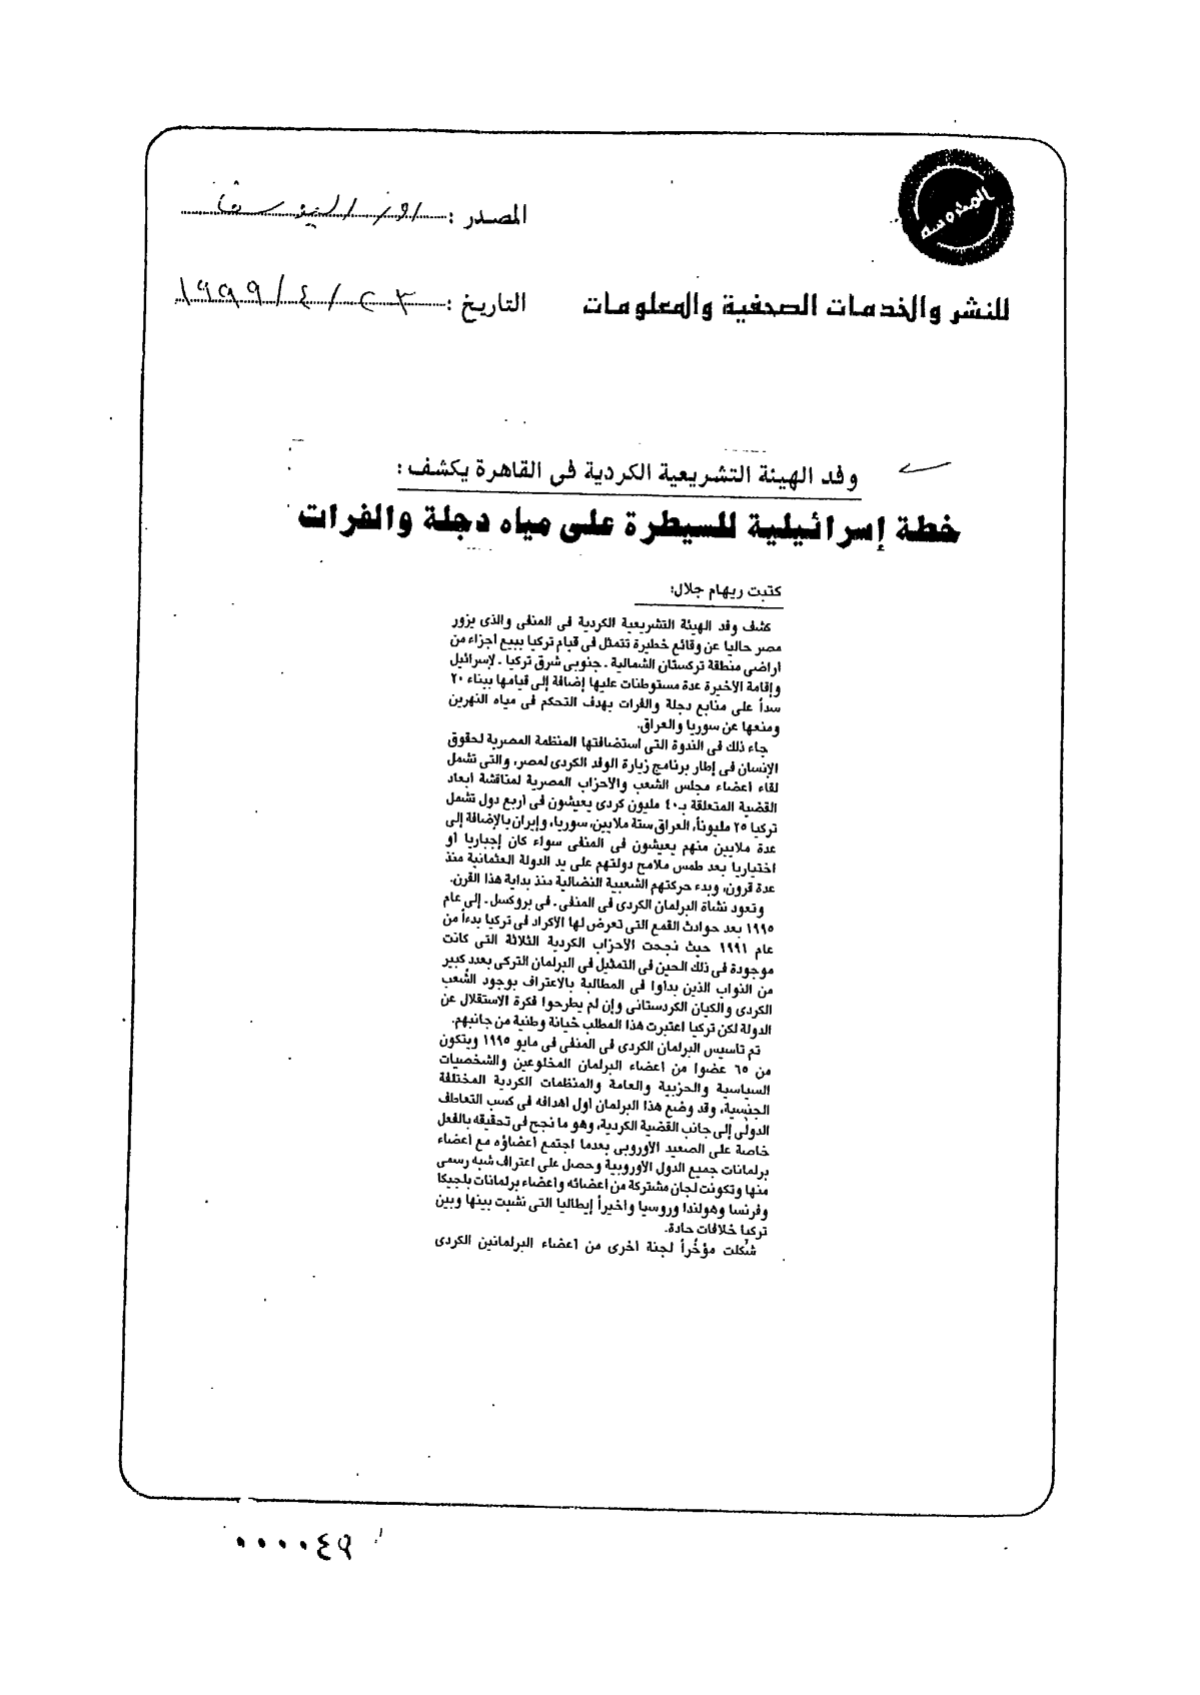 المحروسة
المصدر :
للنشر والخدمات الصحفية والمعلومات
التاريخ : ٢٣ / ٤ / ١٩٩٩
وفد الهيئة التشريعية الكردية فى القاهرة يكشف :
خطة إسرائيلية للسيطرة على مياه دجلة والفرات
كتبت ريهام جلال:
كشف وفد الهيئة التشريعية الكردية فى المنفى والذى يزور
مصر حاليا عن وقائع خطيرة تتمثل فى قيام تركيا ببيع اجزاء من
اراضى منطقة تركستان الشمالية ـ جنوبى شرق تركيا ـ لإسرائيل
وإقامة الأخيرة عدة مستوطنات عليها إضافة إلى قيامها ببناء ٢٠
سداً على منابع دجلة والفرات بهدف التحكم فى مياه النهرين
ومنعها عن سوريا والعراق.
جاء ذلك فى الندوة التى استضافتها المنظمة المصرية لحقوق
الإنسان فى إطار برنامج زيارة الوفد الكردى لمصر، والتى تشمل
لقاء اعضاء مجلس الشعب والأحزاب المصرية لمناقشة أبعاد
القضية المتعلقة بـ٤٠ مليون كردى يعيشون فى أربع دول تشمل
تركيا ٢٥ مليوناً، العراق ستة ملايين، سوريا، وإيران بالإضافة إلى
عدة ملايين منهم يعيشون فى المنفى سواء كان إجباريا أو
اختياريا بعد طمس ملامح دولتهم على يد الدولة العثمانية منذ
عدة قرون، وبدء حركتهم الشعبية النضالية منذ بداية هذا القرن.
وتعود نشأة البرلمان الكردى فى المنفى ـ فى بروكسل ـ إلى عام
١٩٩٥ بعد حوادث القمع التى تعرض لها الأكراد فى تركيا بدءاً من
عام ١٩٩١ حيث نجحت الأحزاب الكردية الثلاثة التى كانت
موجودة فى ذلك الحين فى التمثيل فى البرلمان التركى بعدد كبير
من النواب الذين بدأوا فى المطالبة بالاعتراف بوجود الشعب
الكردى والكيان الكردستانى وإن لم يطرحوا فكرة الاستقلال عن
الدولة لكن تركيا اعتبرت هذا المطلب خيانة وطنية من جانبهم.
تم تأسيس البرلمان الكردى فى المنفى فى مايو ١٩٩٥ ويتكون
من ٦٥ عضوا من أعضاء البرلمان المخلوعين والشخصيات
السياسية والحزبية والعامة والمنظمات الكردية المختلفة
الجنسية، وقد وضع هذا البرلمان أول أهدافه فى كسب التعاطف
الدولى إلى جانب القضية الكردية، وهو ما نجح فى تحقيقه بالفعل
خاصة على الصعيد الأوروبى بعدما اجتمع أعضاؤه مع أعضاء
برلمانات جميع الدول الأوروبية وحصل على اعتراف شبه رسمى
منها وتكونت لجان مشتركة من أعضائه وأعضاء برلمانات بلجيكا
وفرنسا وهولندا وروسيا وأخيراً إيطاليا التى نشبت بينها وبين
تركيا خلافات حادة.
شُكلت مؤخُراً لجنة أخرى من أعضاء البرلمانين الكردى
٠٠٠٠٤٩